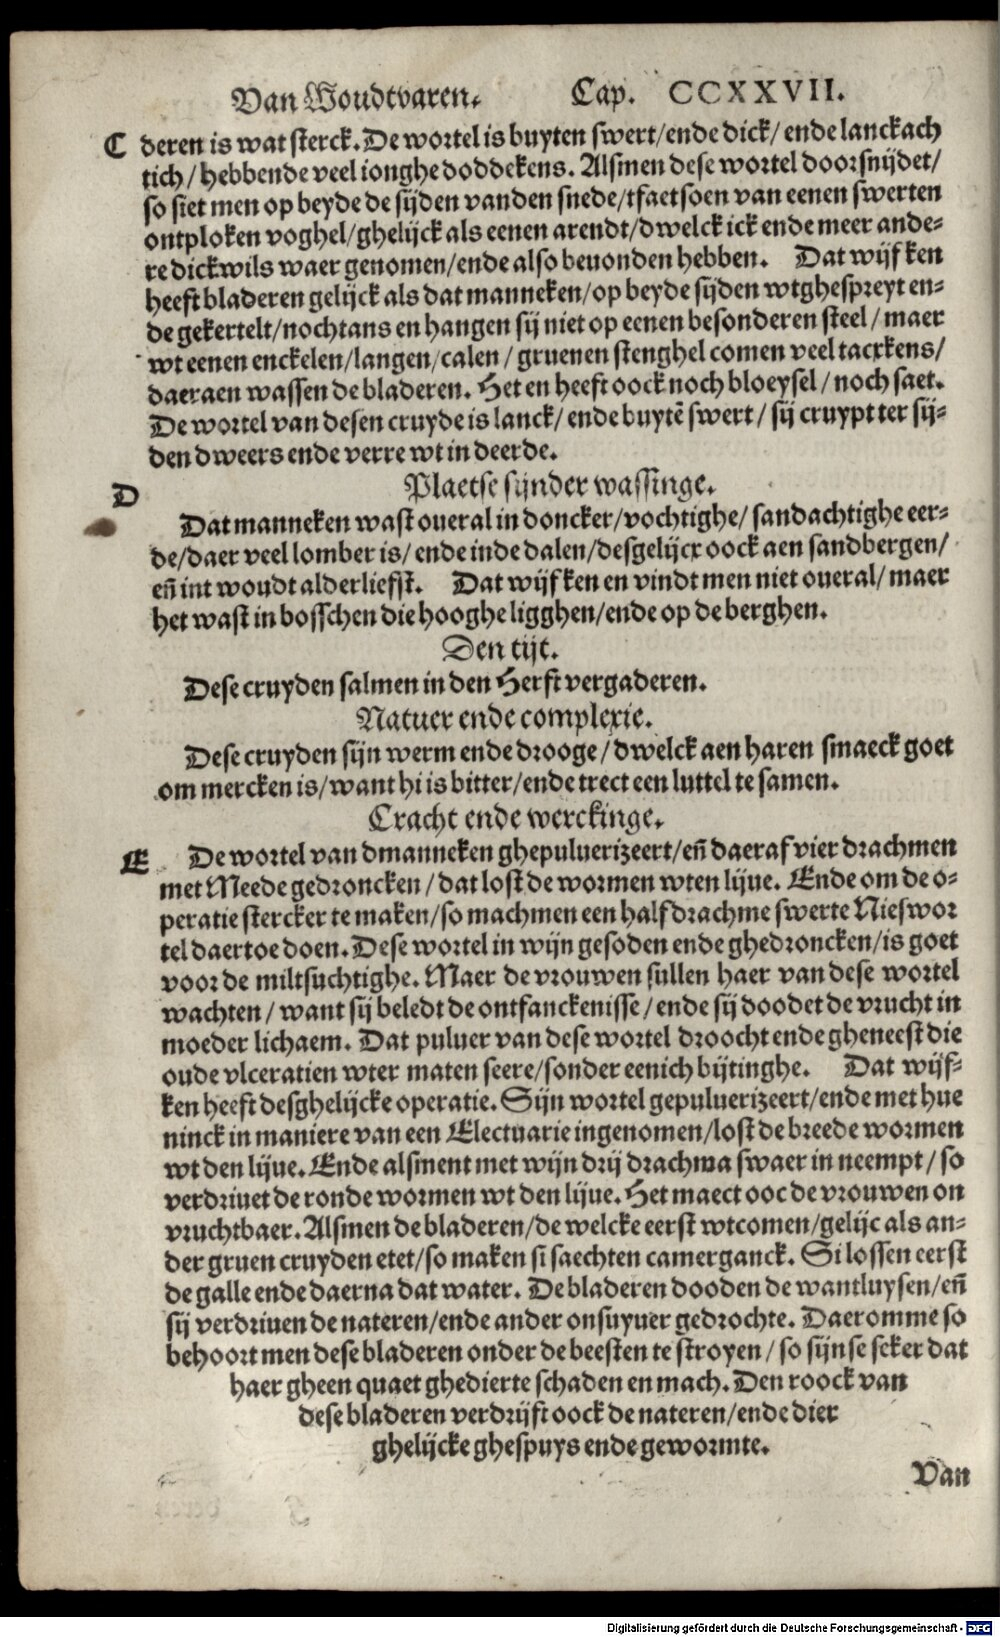 Van Woudtvaren. Cap. CCXXVII.
C deren is wat sterck. De wortel is buyten swert/ende dick/ende lanckach
tich/hebbende veel ionghe doddekens. Alsmen dese wortel doorsnijdet/
so siet men op beyde de sijden vanden snede/tfaetsoen van eenen swerten
ontploken voghel/ghelijck als eenen arendt/dwelck ick ende meer ande-
re dickwils waer genomen/ende also beuonden hebben. Dat wijfken
heeft bladeren gelijck als dat manneken/op beyde sijden wtghespreyt en-
de gekertelt/nochtans en hangen sij niet op eenen besonderen steel/maer
wt eenen enckelen/langen/calen/gruenen stenghel comen veel tacxkens/
daeraen wassen de bladeren. Het en heeft oock noch bloeysel/noch saet.
De wortel van desen cruyde is lanck/ende buytē swert/sij cruypt ter sij-
den dweers ende verre wt in deerde.
Plaetse sijnder wassinge.
D Dat manneken wast oueral in doncker/vochtighe/sandachtighe eer-
de/daer veel lomber is/ende inde dalen/desgelijcx oock aen sandbergen/
eñ int woudt alderliefst. Dat wijfken en vindt men niet oueral/maer
het wast in bosschen die hooghe ligghen/ende op de berghen.
Den tijt.
Dese cruyden salmen in den Herfst vergaderen.
Natuer ende complexie.
Dese cruyden sijn werm ende drooge/dwelck aen haren smaeck goet
om mercken is/want hi is bitter/ende trect een luttel te samen.
Cracht ende werckinge.
E De wortel van dmanneken ghepuluerizeert/eñ daeraf vier drachmen
met Meede gedroncken/dat lost de wormen wten lijue. Ende om de o-
peratie stercker te maken/so machmen een half drachme swerte Nieswor
tel daertoe doen. Dese wortel in wijn gesoden ende ghedroncken/is goet
voor de miltsuchtighe. Maer de vrouwen sullen haer van dese wortel
wachten/want sij beledt de ontfanckenisse/ende sij doodet de vrucht in
moeder lichaem. Dat puluer van dese wortel droocht ende gheneest die
oude vlceratien wter maten seere/sonder eenich bijtinghe. Dat wijf-
ken heeft desghelijcke operatie. Sijn wortel gepuluerizeert/ende met hue
ninck in maniere van een Electuarie ingenomen/lost de breede wormen
wt den lijue. Ende alsment met wijn drij drachma swaer in neempt/so
verdriuet de ronde wormen wt den lijue. Het maect ooc de vrouwen on
vruchtbaer. Alsmen de bladeren/de welcke eerst wtcomen/gelijc als an-
der gruen cruyden etet/so maken si saechten camerganck. Si lossen eerst
de galle ende daerna dat water. De bladeren dooden de wantluysen/eñ
sij verdriuen de nateren/ende ander onsuyuer gedrochte. Daeromme so
behoort men dese bladeren onder de beesten te stroyen/so sijnse seker dat
haer gheen quaet ghedierte schaden en mach. Den roock van
dese bladeren verdrijft oock de nateren/ende dier
ghelijcke ghespuys ende gewormte.
Van
Digitalisierung gefördert durch die Deutsche Forschungsgemeinschaft - DFG